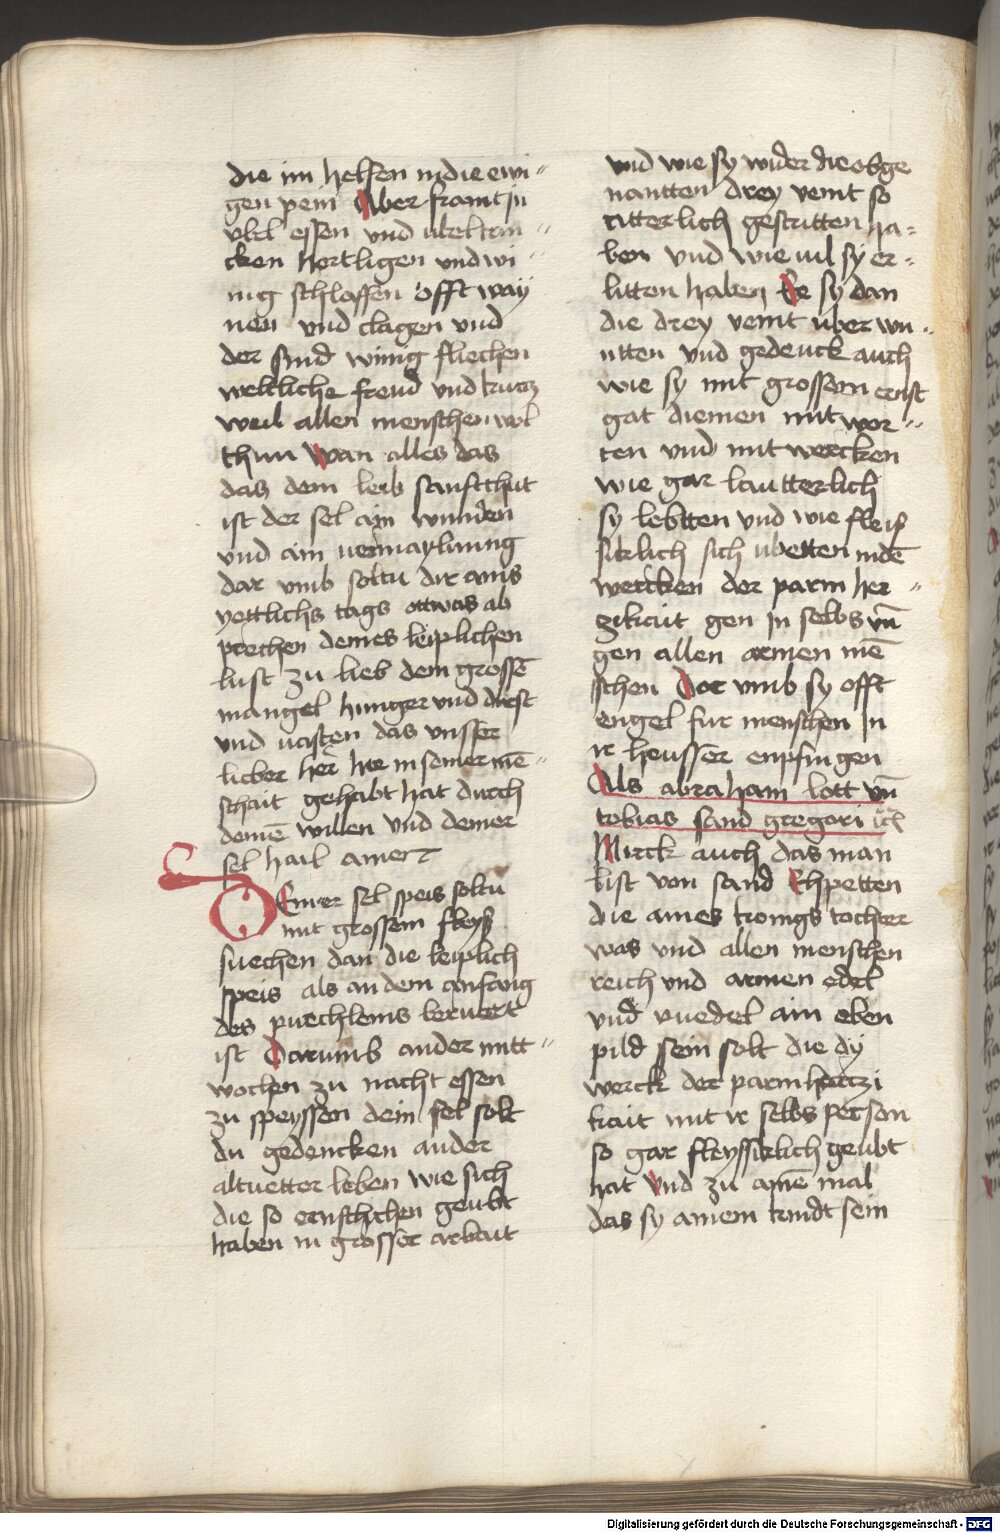 die im helfen in die ewi
gen pein Aber framt in
vbel essen vnd vbel trin
cken hertligen vnd wi
nig schlaffen offt way
nen vnd clagen vnd
der sind winig fliechen
weltliche freud vnd kurtz
weil allen menschen wol
thun Wan alles das
das dem leib sanft thut
ist der sel ain wunden
vnd ain vermaylning
dar vmb soltu dir ains
yettlichs tags ettwas ab
prechen deines leiplichen
lust zu lieb dem grossē
mangel hunger vnd durst
vnd vasten das vnsser
lieber her hie in seiner mē
schait gehabt hat durch
deinē willen vnd deiner
sel hail amen
DEiner sel speis soltu
mit grossem fleyß
suechen dan die leiplich
speis als an dem anfang
des puechleins beruert
ist Darumb an der mitt
wochen zu nacht essen
zu speyssen dein sel solt
du gedencken an der
altuetter leben wie sich
die so ernstlichen geubt
haben in grosser arbait
vnd wie sy wider die obge
nantten drey veint so
ritterlich gestritten ha
ben vnd wie uil sy er
litten haben Ee sy dan
die drey veint uber wu
ntten vnd gedenck auch
wie sy mit grossem ernst
gat dienen mit wor
ten vnd mit wercken
wie gar lautterlich
sy lebtten vnd wie fleis
siklich sich ubetten in dē
wercken der parm her
zikait gen in selbs vn̄
gen allen armen mē
schen Dar vmb sy offt
engel fur menschen in
ir heusser enpfingen
Als abraham lott vn̄
tobias sand gregori
Mirck auch das man
list von sand Elspetten
die aines kونigs tochter
was vnd allen menschen
reich vnd armen edel
vnd vnedel ain eben
pild sein solt die dy
werck der parmhertzi
kait mit ir selbs person
so gar fleyssiklich geubt
hat Vnd zu ainē mal
das sy ainem kindt sein
Digitalisierung gefördert durch die Deutsche Forschungsgemeinschaft - DFG